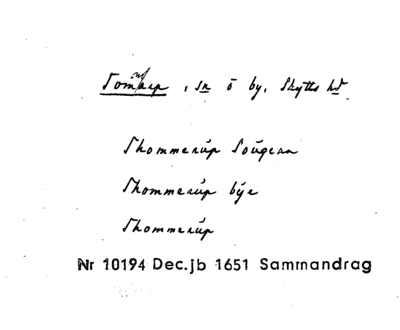 Tommarp, sn o by, Skytts hd
Thommerúp Soúgenn
Thommerúp býe
Thommerúp
Nr 10194 Dec.jb 1651 Sammandrag